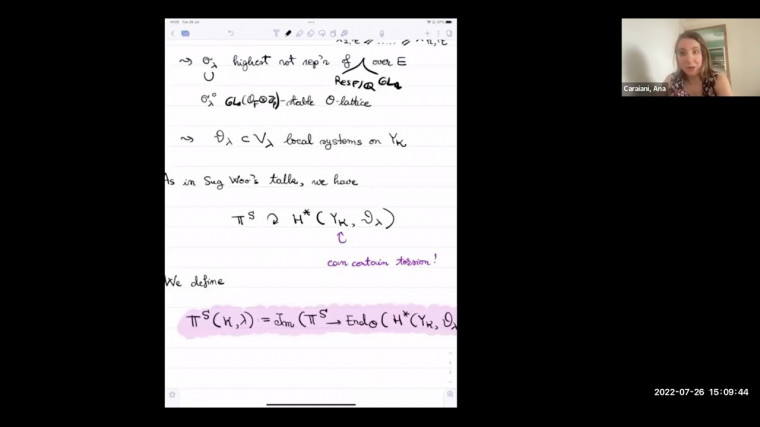 ⇝ σ_λ highest wt rep'n of λ over E
Res_F/Q GL_n
∪
σ_λ° GL_n(O_F⊗Z_p)-stable O-lattice
⇝ 𝒱_λ ⊂ V_λ local systems on Y_K
As in Sug Woo's talks, we have
𝕋^S ↻ H*(Y_K, 𝒱_λ)
can contain torsion!
We define
𝕋^S(K,λ) = Im(𝕋^S → End_O(H*(Y_K, 𝒱_λ
Caraiani, Ana
2022-07-26 15:09:44